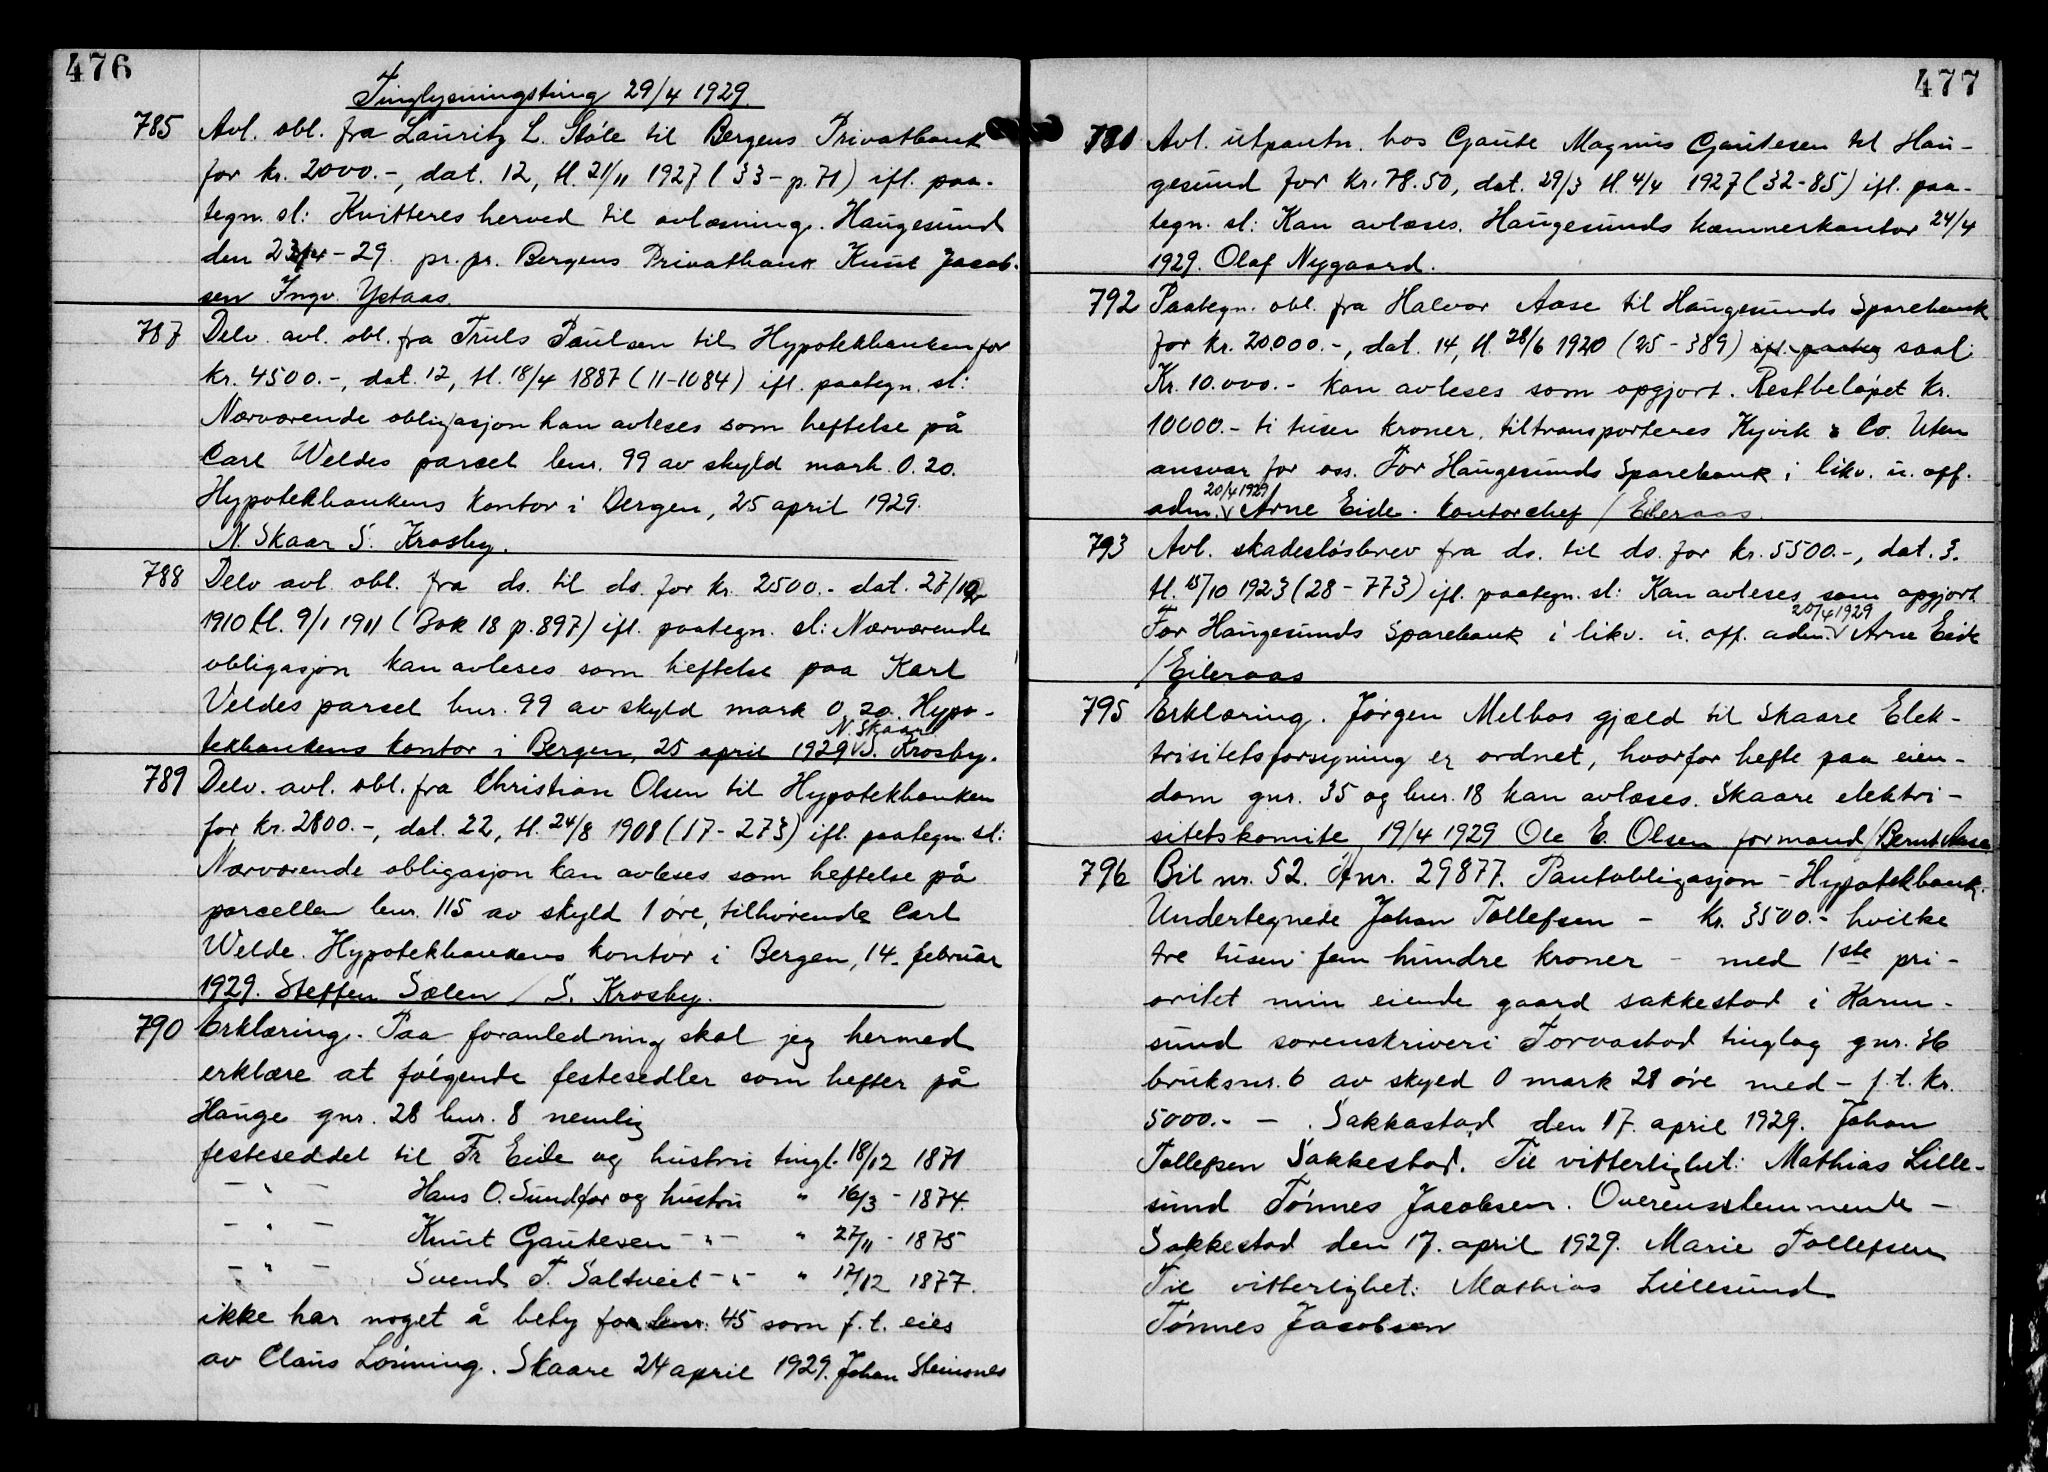 476
Tinglysningsting 29/4 1929.
785 Avl. obl. fra Lauritz L. Støle til Bergens Privatbank
for kr. 2000.-, dat. 12, tl. 21/11 1927 (33 - p. 71) ifl. paa-
tegn. sl: Kvitteres herved til avlæsning. Haugesund
den 23/4 - 29. pr. pr. Bergens Privatbank Knut Jacob-
sen Ingv. Ystaas.
787 Delv. avl. obl. fra Truls Paulsen til Hypotekbanken for
kr. 4500.-, dat. 12, tl. 18/4 1887 (11-1084) ifl. paategn. sl:
Nærværende obligasjon kan avleses som heftelse på
Carl Weldes parcel bnr. 99 av skyld mark 0.20.
Hypotekbankens kontor i Bergen, 25 april 1929.
N. Skaar S. Krosby.
788 Delv avl. obl. fra ds. til ds. for kr. 2500.- dat. 27/12
1910 tl. 9/1 1911 (Bok 18 p. 897) ifl. paategn. sl: Nærværende
obligasjon kan avleses som heftelse paa Karl
Veldes parcel bnr. 99 av skyld mark 0,20. Hypo-
tekbankens kontor i Bergen, 25 april 1929 N. Skaar S. Krosby.
789 Delv. avl. obl. fra Christian Olsen til Hypotekbanken
for kr. 2800.-, dat. 22, tl. 24/8 1908 (17 - 273) ifl. paategn. sl:
Nærværende obligasjon kan avleses som heftelse på
parcellen bnr. 115 av skyld 1 øre, tilhørende Carl
Welde. Hypotekbankens kontor i Bergen, 14. februar
1929. Steffen Sælen / S. Krosby.
790 Erklæring. Paa foranledning skal jeg hermed
erklære at følgende festesedler som hefter på
Hauge gnr. 28 bnr. 8 nemlig
festeseddel til Fr Eide og hustru tingl. 18/12 1871
- " - Hans O. Sundfør og hustru " 16/3 - 1874.
- " - Knut Gautesen - " - " 27/11 - 1875
- " - Svend T. Saltveit - " - " 17/12 1877.
ikke har noget å bety for bnr. 45 som f. t. eies
av Claus Lønning. Skaare 24 april 1929. Johan Steinsnes
477
791 Avl. utpantn. hos Gaute Magnus Gautesen til Hau-
gesund for kr. 78.50, dat. 29/3 tl. 4/4 1927 (32-85) ifl. paa-
tegn. sl: Kan avlæses. Haugesunds kæmnerkontor 24/4
1929. Olaf Nygaard.
792 Paategn. obl. fra Halvor Aase til Haugesunds Sparebank
for kr. 20.000.-, dat. 14, tl. 28/6 1920 (25 - 389) ifl. paateg saal:
Kr. 10.000.- kan avleses som opgjort. Restbeløpet kr.
10000.- ti tusen kroner, tiltransporteres Kyvik & Co. Uten
ansvar for oss. For Haugesunds Sparebank i likv. u. off.
adm. 20/4 1929 Arne Eide. kontorchef / Eileraas.
793 Avl. skadesløsbrev fra ds. til ds. for kr. 5500.-, dat. 3.
tl. 15/10 1923 (28 - 773) ifl. paategn. sl: Kan avleses som opgjort
For Haugesunds Sparebank i likv. u. off. adm. 20/4 1929 Arne Eide
/Eileraas
795 Erklæring. Jørgen Melbos gjæld til Skaare Elek-
trisitetsforsyning er ordnet, hvorfor hefte paa eien-
dom gnr. 35 og bnr. 18 kan avlæses. Skaare elektri-
sitetskomite 19/4 1929 Ole E. Olsen formand / Bernt Aase
796 Bil nr. 52. Anr. 29877. Pantobligasjon - Hypotekbank.
Undertegnede Johan Tollefsen - kr. 3500.- hvilke
tre tusen fem hundre kroner - med 1ste pri-
oritet min eiende gaard sakkestad i Karm-
sund sorenskriveri Torvastad tinglag gnr. 36
bruksnr. 6 av skyld 0 mark 28 øre med - f. t. kr.
5000.- - . Sakkastad den 17. april 1929. Johan
Tollefsen Sakkestad. Til vitterlighet: Mathias Lille-
sund Tønnes Jacobsen. Overensstemmende -
Sakkestad den 17. april 1929. Marie Tollefsen
Til vitterlighet: Mathias Lillesund
Tønnes Jacobsen